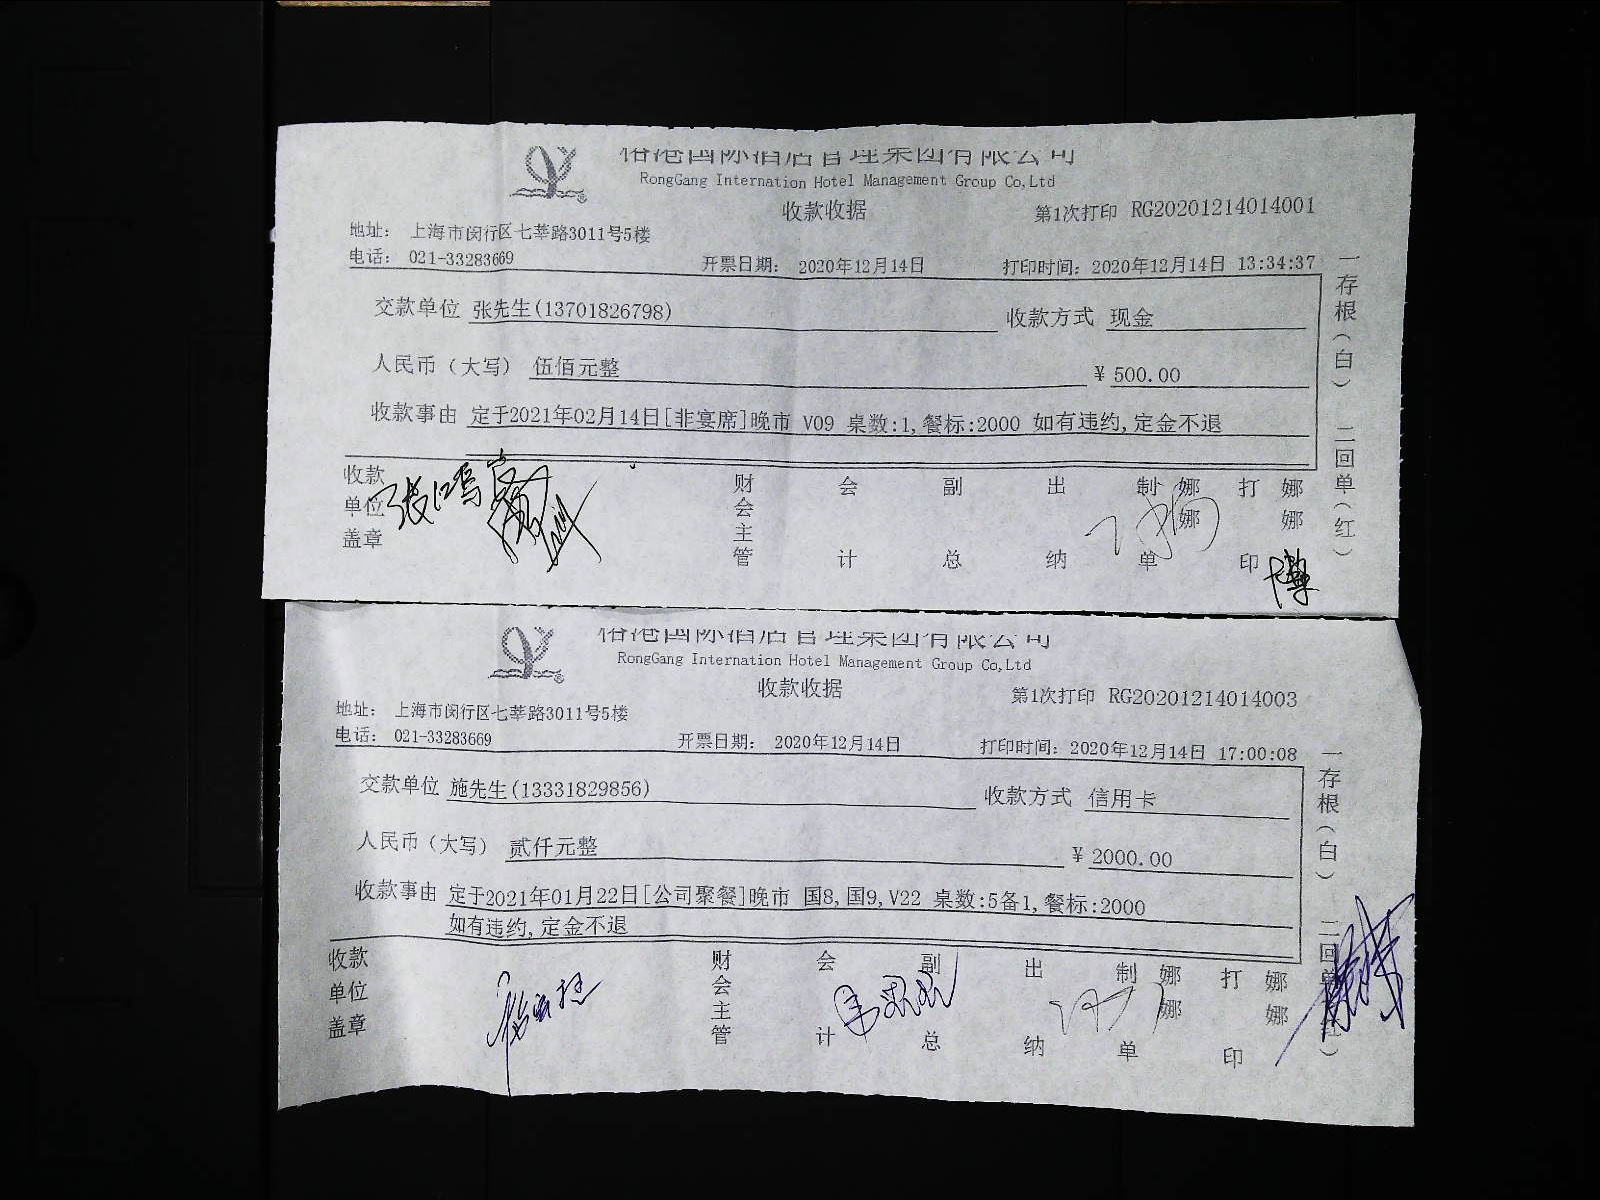 国际酒店管理集团有限公司
RongGang Internation Hotel Management Group Co,Ltd
收款收据
第1次打印 RG20201214014001
地址: 上海市闵行区七莘路3011号5楼
电话: 021-33283669
开票日期: 2020年12月14日
打印时间: 2020年12月14日 13:34:37
交款单位 张先生(13701826798)
收款方式 现金
人民币(大写) 伍佰元整
¥ 500.00
收款事由 定于2021年02月14日[非宴席]晚市 V09 桌数:1,餐标:2000 如有违约,定金不退
收款单位盖章
财会主管
会计
副总
出纳
制单
娜娜
打印
娜娜
一存根(白) 二回单(红)
国际酒店管理集团有限公司
RongGang Internation Hotel Management Group Co,Ltd
收款收据
第1次打印 RG20201214014003
地址: 上海市闵行区七莘路3011号5楼
电话: 021-33283669
开票日期: 2020年12月14日
打印时间: 2020年12月14日 17:00:08
交款单位 施先生(13331829856)
收款方式 信用卡
人民币(大写) 贰仟元整
¥ 2000.00
收款事由 定于2021年01月22日[公司聚餐]晚市 国8,国9,V22 桌数:5备1,餐标:2000
如有违约,定金不退
收款单位盖章
财会主管
会计
副总
出纳
制单
娜娜
打印
娜娜
一存根(白) 二回单(红)